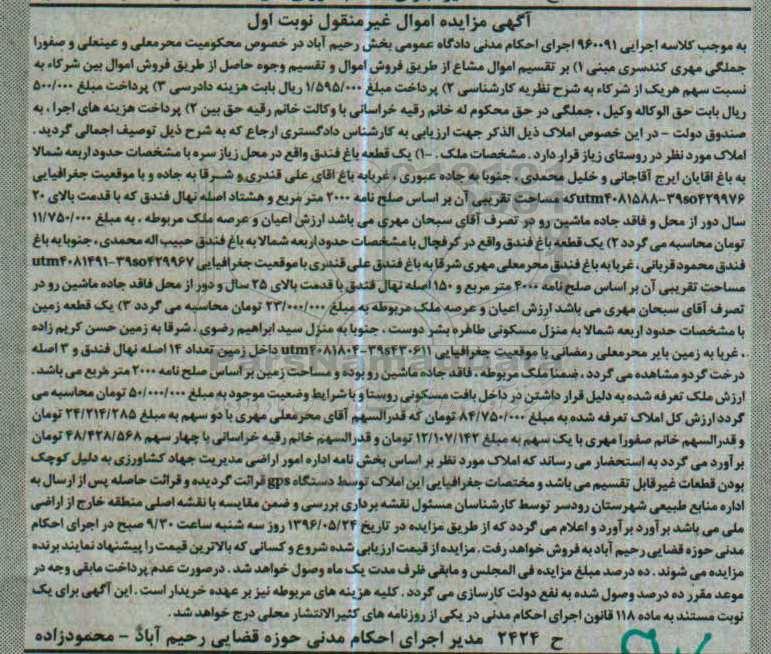 آگهی مزایده اموال غیرمنقول نوبت اول
به موجب کلاسه اجرایی ۹۶۰۰۹۱ اجرای احکام مدنی دادگاه عمومی بخش رحیم آباد در خصوص محکومیت محرمعلی و عینعلی و صفورا
جملگی مهری کندسری مبنی ۱) بر تقسیم اموال مشاع از طریق فروش اموال و تقسیم وجوه حاصل از طریق فروش اموال بین شرکاء به
نسبت سهم هریک از شرکاء به شرح نظریه کارشناسی ۲) پرداخت مبلغ ۱/۵۹۵/۰۰۰ ریال بابت هزینه دادرسی ۳) پرداخت مبلغ ۵۰۰/۰۰۰
ریال بابت حق الوکاله وکیل ، جملگی در حق محکوم له خانم رقیه خراسانی با وکالت خانم رقیه حق بین ۲) پرداخت هزینه های اجرا ، به
صندوق دولت – در این خصوص املاک ذیل الذکر جهت ارزیابی به کارشناس دادگستری ارجاع که به شرح ذیل توصیف اجمالی گردید .
املاک مورد نظر در روستای زیاز قرار دارد . مشخصات ملک . ۱-) یک قطعه باغ فندق واقع در محل زیاز سره با مشخصات حدود اربعه شمالا
به باغ اقایان ایرج آقاجانی و خلیل محمدی ، جنوبا به جاده عبوری ، غربا به باغ اقای علی قندری و شرقا به جاده و با موقعیت جغرافیایی
utm۴۰۸۱۵۸۸-۳۹so۴۲۹۹۷۶ که مساحت تقریبی آن بر اساس صلح نامه ۲۰۰۰ متر مربع و هشتاد اصله نهال فندق که با قدمت بالای ۲۰
سال دور از محل و فاقد جاده ماشین رو در تصرف آقای سبحان مهری می باشد ارزش اعیان و عرصه ملک مربوطه ، به مبلغ ۱۱/۷۵۰/۰۰۰
تومان محاسبه می گردد ۲) یک قطعه باغ فندق واقع در گرفجال با مشخصات حدود اربعه شمالا به باغ فندق حبیب اله محمدی ، جنوبا به باغ
فندق محمود قربانی ، غربا به باغ فندق محرمعلی مهری شرقا به باغ فندق علی قندری با موقعیت جغرافیایی utm۴۰۸۱۴۹۱-۳۹so۴۲۹۹۶۷
مساحت تقریبی آن بر اساس صلح نامه ۴۰۰۰ متر مربع و ۱۵۰ اصله نهال فندق با قدمت بالای ۲۵ سال و دور از محل فاقد جاده ماشین رو در
تصرف آقای سبحان مهری می باشد ارزش اعیان و عرصه ملک مربوطه به مبلغ ۲۳/۰۰۰/۰۰۰ تومان محاسبه می گردد ۳) یک قطعه زمین
با مشخصات حدود اربعه شمالا به منزل مسکونی طاهره بشر دوست ، جنوبا به منزل سید ابراهیم رضوی ، شرقا به زمین حسن کریم زاده
، غربا به زمین بایر محرمعلی رمضانی با موقعیت جغرافیایی utm۴۰۸۱۸۰۲-۳۹s۴۳۰۶۱۱ داخل زمین تعداد ۱۴ اصله نهال فندق و ۳ اصله
درخت گردو مشاهده می گردد ، ضمنا ملک مربوطه ، فاقد جاده ماشین رو بوده و مساحت زمین بر اساس صلح نامه ۲۰۰۰ متر مربع می باشد .
ارزش ملک تعرفه شده به دلیل قرار داشتن در داخل بافت مسکونی روستا و با شرایط وضعیت موجود به مبلغ ۵۰/۰۰۰/۰۰۰ تومان محاسبه می
گردد ارزش کل املاک تعرفه شده به مبلغ ۸۴/۷۵۰/۰۰۰ تومان که قدرالسهم آقای محرمعلی مهری با دو سهم به مبلغ ۲۴/۲۱۴/۲۸۵ تومان
و قدرالسهم خانم صفورا مهری با یک سهم به مبلغ ۱۲/۱۰۷/۱۴۲ تومان و قدرالسهم خانم رقیه خراسانی با چهار سهم ۴۸/۴۲۸/۵۶۸ تومان
برآورد می گردد به استحضار می رساند که املاک مورد نظر بر اساس بخش نامه اداره امور اراضی مدیریت جهاد کشاورزی به دلیل کوچک
بودن قطعات غیرقابل تقسیم می باشد و مختصات جغرافیایی این املاک توسط دستگاه gps قرائت گردیده و قرائت حاصله پس از ارسال به
اداره منابع طبیعی شهرستان رودسر توسط کارشناسان مسئول نقشه برداری بررسی و ضمن مقایسه با نقشه اصلی منطقه خارج از اراضی
ملی می باشد برآورد برآورد و اعلام می گردد که از طریق مزایده در تاریخ ۱۳۹۶/۰۵/۲۴ روز سه شنبه ساعت ۹/۳۰ صبح در اجرای احکام
مدنی حوزه قضایی رحیم آباد به فروش خواهد رفت . مزایده از قیمت ارزیابی شده شروع و کسانی که بالاترین قیمت را پیشنهاد نمایند برنده
مزایده می شوند . ده درصد مبلغ مزایده فی المجلس و مابقی ظرف مدت یک ماه وصول خواهد شد . درصورت عدم پرداخت مابقی وجه در
موعد مقرر ده درصد وصول شده به نفع دولت کارسازی می گردد . کلیه هزینه های مربوطه نیز بر عهده خریدار است . این آگهی برای یک
نوبت مستند به ماده ۱۱۸ قانون اجرای احکام مدنی در یکی از روزنامه های کثیرالانتشار محلی درج خواهد شد .
ح ۲۴۲۴ مدیر اجرای احکام مدنی حوزه قضایی رحیم آباد – محمودزاده